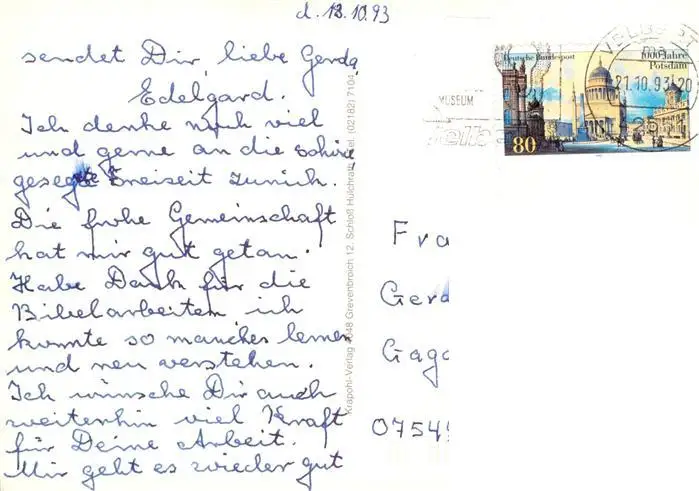 d. 12.10.93
sendet Dir, liebe Gerda,
Edelgard.
Ich denke noch viel
und gerne an die schöne
gesegte Freizeit zurück.
Die frohe Gemeinschaft
hat mir gut getan.
Habe Dank für die
Bibelarbeiten ich
konnte so manches lernen
und neu verstehen.
Ich wünsche Dir auch
weiterhin viel Kraft
für Deine Arbeit.
Mir geht es wieder gut
Krapohl-Verlag 4048 Grevenbroich 12, Schloß Hülchrath, Tel. (02182) 7104
MUSEUM
Deutsche Bundespost
1000 Jahre
Potsdam
80
VELBERT
21.10.93-20
Fra
Gerd
Gago
07545